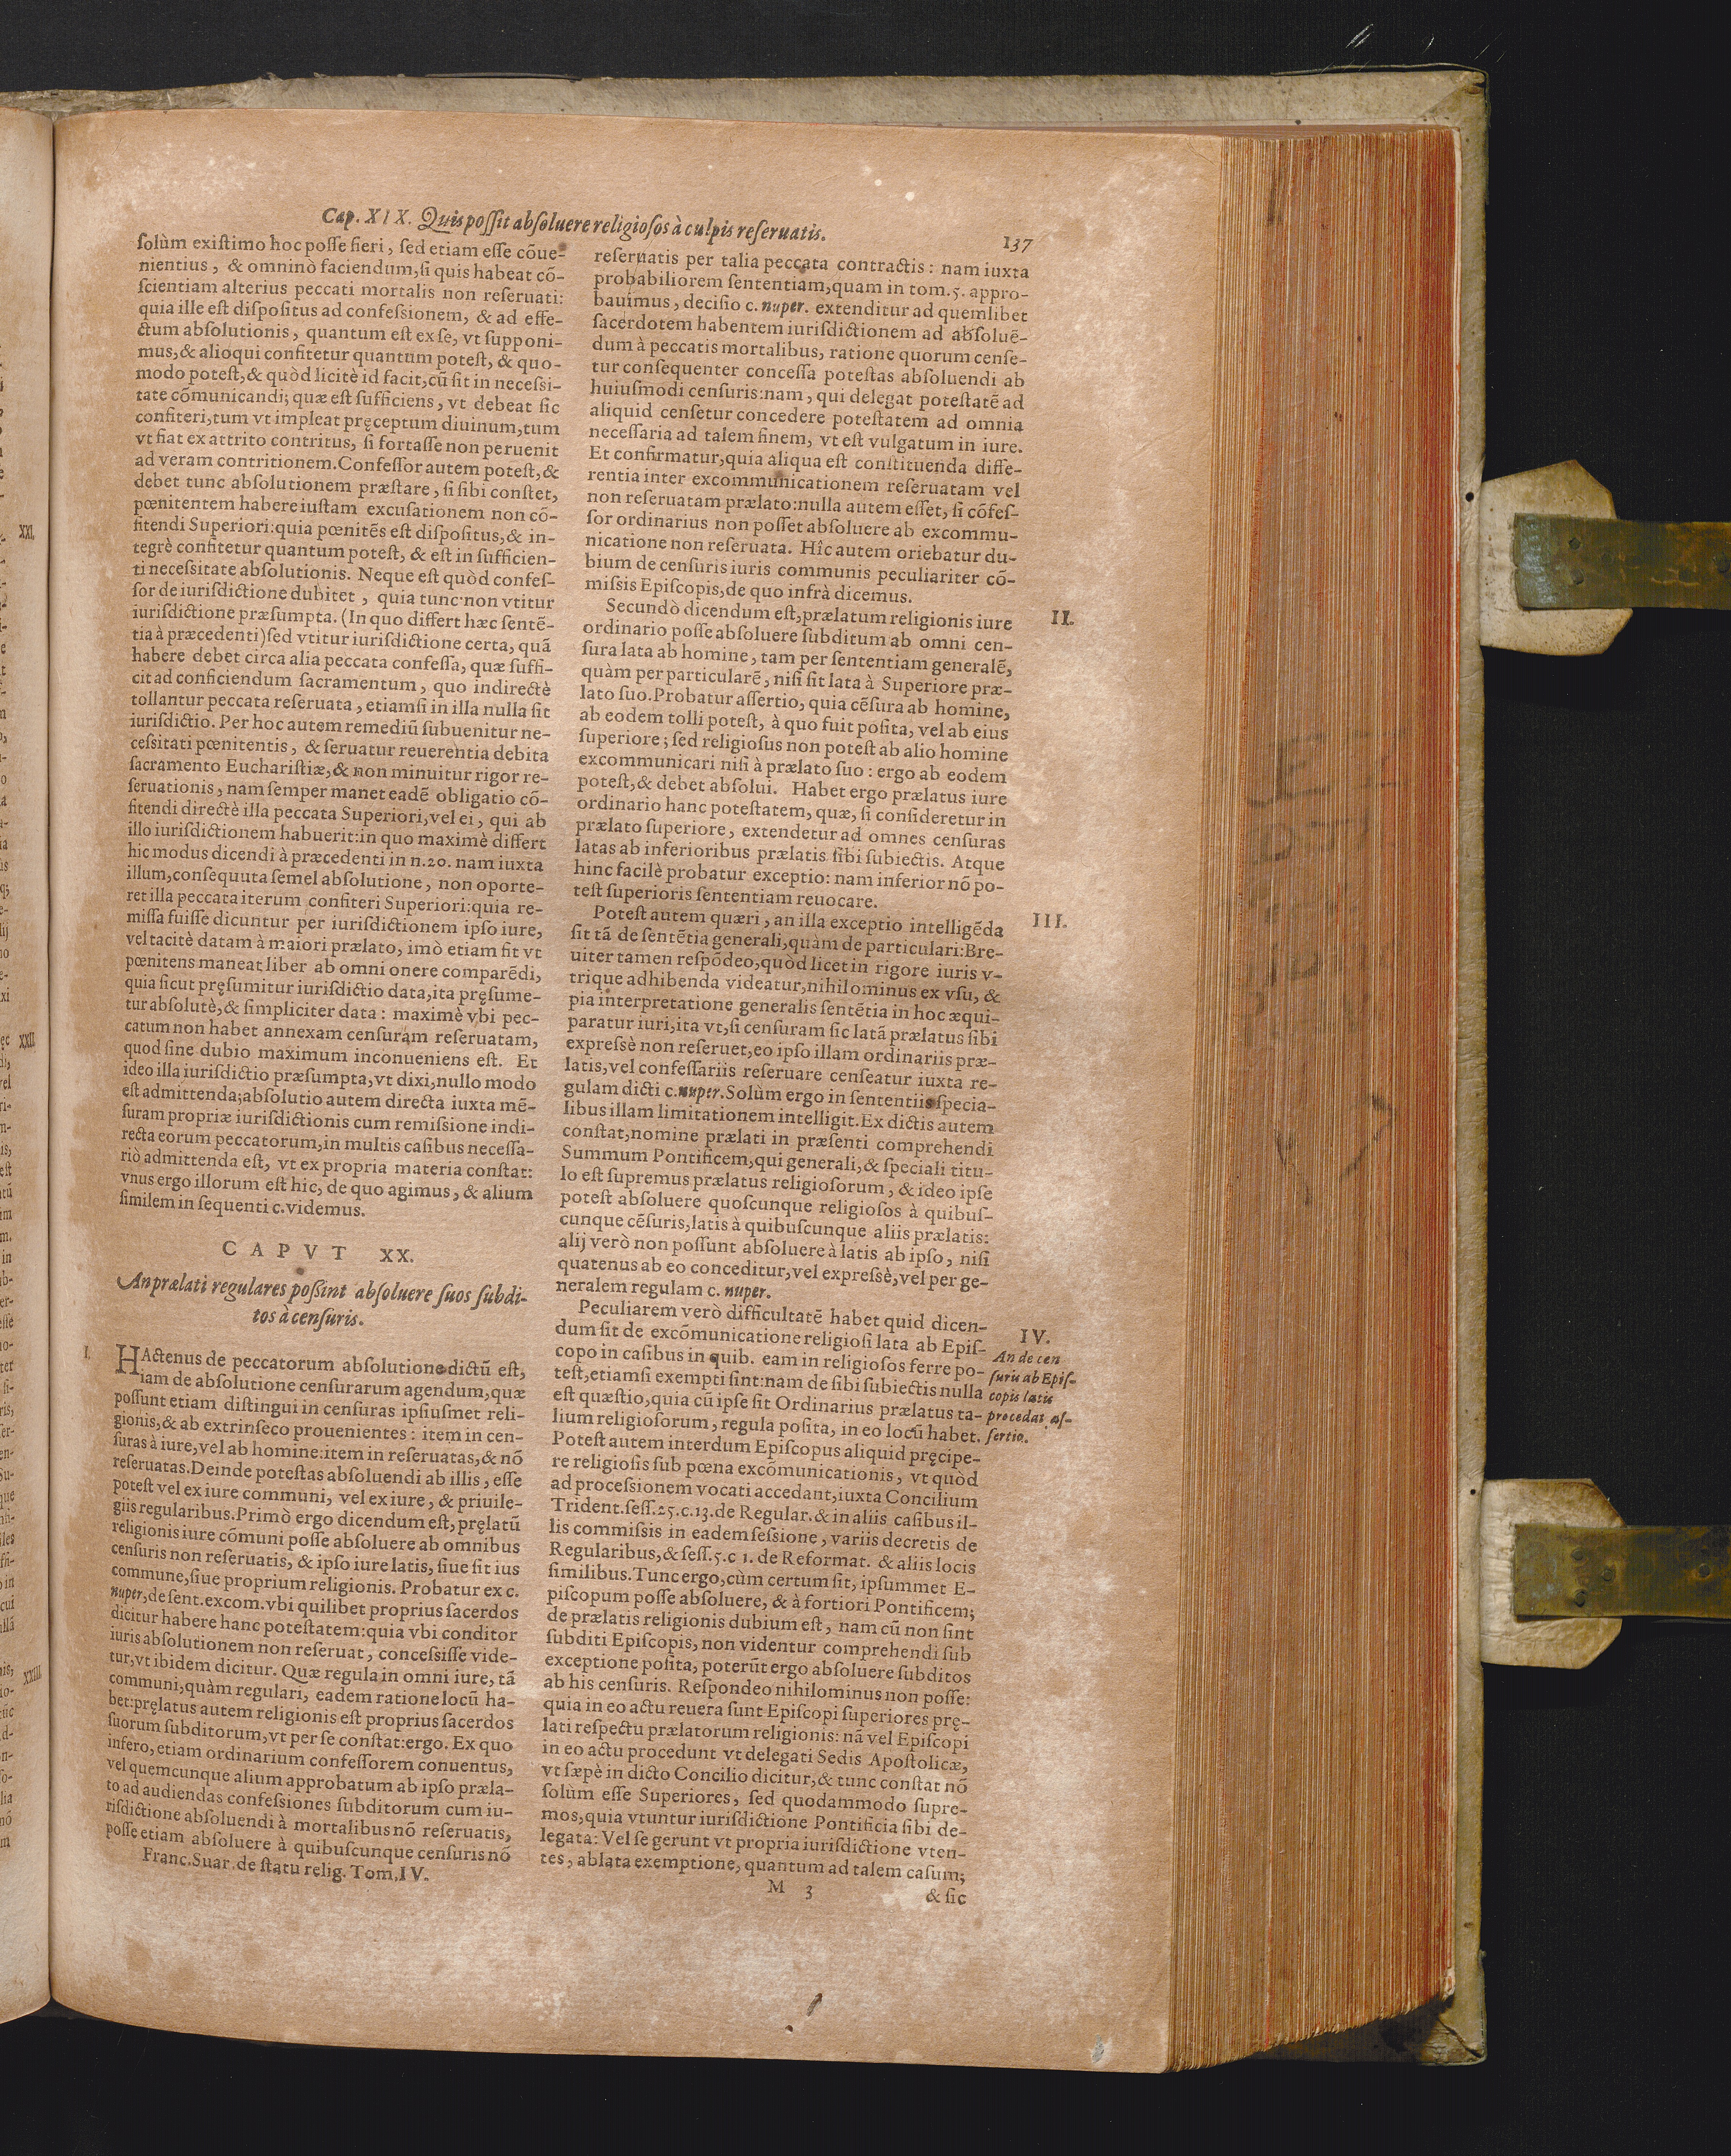 Cap. XIX. Quis poſſit abſoluere religioſos à culpis reſeruatis.
137
ſolùm exiſtimo hoc poſſe fieri, ſed etiam eſſe cõue-
nientius, & omninò faciendum, ſi quis habeat cõ-
ſcientiam alterius peccati mortalis non reſeruati:
quia ille eſt diſpoſitus ad confeſsionem, & ad effe-
ctum abſolutionis, quantum eſt ex ſe, vt ſupponi-
mus, & alioqui confitetur quantum poteſt, & quo-
modo poteſt, & quòd licitè id facit, cũ ſit in neceſsi-
tate cõmunicandi; quæ eſt ſufficiens, vt debeat ſic
confiteri, tum vt impleat pręceptum diuinum, tum
vt fiat ex attrito contritus, ſi fortaſſe non peruenit
ad veram contritionem. Confeſſor autem poteſt, &
debet tunc abſolutionem præſtare, ſi ſibi conſtet,
pœnitentem habere iuſtam excuſationem non cõ-
fitendi Superiori: quia pœnitẽs eſt diſpoſitus, & in-
tegrè confitetur quantum poteſt, & eſt in ſufficien-
ti neceſsitate abſolutionis. Neque eſt quòd confeſ-
ſor de iuriſdictione dubitet, quia tunc non vtitur
iuriſdictione præſumpta. (In quo differt hæc ſentẽ-
tia à præcedenti) ſed vtitur iuriſdictione certa, quã
habere debet circa alia peccata confeſſa, quæ ſuffi-
cit ad conficiendum ſacramentum, quo indirectè
tollantur peccata reſeruata, etiamſi in illa nulla ſit
iuriſdictio. Per hoc autem remediũ ſubuenitur ne-
ceſsitati pœnitentis, & ſeruatur reuerentia debita
ſacramento Euchariſtiæ, & non minuitur rigor re-
ſeruationis, nam ſemper manet eadẽ obligatio cõ-
fitendi directè illa peccata Superiori, vel ei, qui ab
illo iuriſdictionem habuerit: in quo maximè differt
hic modus dicendi à præcedenti in n.20. nam iuxta
illum, conſequuta ſemel abſolutione, non oporte-
ret illa peccata iterum confiteri Superiori: quia re-
miſſa fuiſſe dicuntur per iuriſdictionem ipſo iure,
vel tacitè datam à maiori prælato, imò etiam fit vt
pœnitens maneat liber ab omni onere comparẽdi,
quia ſicut pręſumitur iuriſdictio data, ita pręſume-
tur abſolutè, & ſimpliciter data: maximè vbi pec-
catum non habet annexam cenſuram reſeruatam,
quod ſine dubio maximum inconueniens eſt. Et
ideo illa iuriſdictio præſumpta, vt dixi, nullo modo
eſt admittenda; abſolutio autem directa iuxta mẽ-
ſuram propriæ iuriſdictionis cum remiſsione indi-
recta eorum peccatorum, in multis caſibus neceſſa-
riò admittenda eſt, vt ex propria materia conſtat:
vnus ergo illorum eſt hic, de quo agimus, & alium
ſimilem in ſequenti c. videmus.
CAPVT XX.
An prælati regulares poßint abſoluere ſuos ſubdi-
tos à cenſuris.
I.
HActenus de peccatorum abſolutione dictũ eſt,
iam de abſolutione cenſurarum agendum, quæ
poſſunt etiam diſtingui in cenſuras ipſiuſmet reli-
gionis, & ab extrinſeco prouenientes: item in cen-
ſuras à iure, vel ab homine: item in reſeruatas, & nõ
reſeruatas. Deinde poteſtas abſoluendi ab illis, eſſe
poteſt vel ex iure communi, vel ex iure, & priuile-
giis regularibus. Primò ergo dicendum eſt, pręlatũ
religionis iure cõmuni poſſe abſoluere ab omnibus
cenſuris non reſeruatis, & ipſo iure latis, ſiue ſit ius
commune, ſiue proprium religionis. Probatur ex c.
nuper, de ſent. excom. vbi quilibet proprius ſacerdos
dicitur habere hanc poteſtatem: quia vbi conditor
iuris abſolutionem non reſeruat, conceſsiſſe vide-
tur, vt ibidem dicitur. Quæ regula in omni iure, tã
communi, quàm regulari, eadem ratione locũ ha-
bet: pręlatus autem religionis eſt proprius ſacerdos
ſuorum ſubditorum, vt per ſe conſtat: ergo. Ex quo
infero, etiam ordinarium confeſſorem conuentus,
vel quemcunque alium approbatum ab ipſo præla-
to ad audiendas confeſsiones ſubditorum cum iu-
riſdictione abſoluendi à mortalibus nõ reſeruatis,
poſſe etiam abſoluere à quibuſcunque cenſuris nõ
Franc. Suar. de ſtatu relig. Tom. IV.
reſeruatis per talia peccata contractis: nam iuxta
probabiliorem ſententiam, quam in tom. 5. appro-
bauimus, deciſio c. nuper. extenditur ad quemlibet
ſacerdotem habentem iuriſdictionem ad abſoluẽ-
dum à peccatis mortalibus, ratione quorum cenſe-
tur conſequenter conceſſa poteſtas abſoluendi ab
huiuſmodi cenſuris: nam, qui delegat poteſtatẽ ad
aliquid cenſetur concedere poteſtatem ad omnia
neceſſaria ad talem finem, vt eſt vulgatum in iure.
Et confirmatur, quia aliqua eſt conſtituenda diffe-
rentia inter excommunicationem reſeruatam vel
non reſeruatam prælato: nulla autem eſſet, ſi cõfeſ-
ſor ordinarius non poſſet abſoluere ab excommu-
nicatione non reſeruata. Hîc autem oriebatur du-
bium de cenſuris iuris communis peculiariter cõ-
miſsis Epiſcopis, de quo infrà dicemus.
II.
Secundò dicendum eſt, prælatum religionis iure
ordinario poſſe abſoluere ſubditum ab omni cen-
ſura lata ab homine, tam per ſententiam generalẽ,
quàm per particularẽ, niſi ſit lata à Superiore præ-
lato ſuo. Probatur aſſertio, quia cẽſura ab homine,
ab eodem tolli poteſt, à quo fuit poſita, vel ab eius
ſuperiore; ſed religioſus non poteſt ab alio homine
excommunicari niſi à prælato ſuo: ergo ab eodem
poteſt, & debet abſolui. Habet ergo prælatus iure
ordinario hanc poteſtatem, quæ, ſi conſideretur in
prælato ſuperiore, extendetur ad omnes cenſuras
latas ab inferioribus prælatis ſibi ſubiectis. Atque
hinc facilè probatur exceptio: nam inferior nõ po-
teſt ſuperioris ſententiam reuocare.
III.
Poteſt autem quæri, an illa exceptio intelligẽda
ſit tã de ſentẽtia generali, quàm de particulari: Bre-
uiter tamen reſpõdeo, quòd licet in rigore iuris v-
trique adhibenda videatur, nihilominus ex vſu, &
pia interpretatione generalis ſentẽtia in hoc æqui-
paratur iuri, ita vt, ſi cenſuram ſic latã prælatus ſibi
expreſsè non reſeruet, eo ipſo illam ordinariis præ-
latis, vel confeſſariis reſeruare cenſeatur iuxta re-
gulam dicti c. nuper. Solùm ergo in ſententiis ſpecia-
libus illam limitationem intelligit. Ex dictis autem
conſtat, nomine prælati in præſenti comprehendi
Summum Pontificem, qui generali, & ſpeciali titu-
lo eſt ſupremus prælatus religioſorum, & ideo ipſe
poteſt abſoluere quoſcunque religioſos à quibuſ-
cunque cẽſuris, latis à quibuſcunque aliis prælatis:
alij verò non poſſunt abſoluere à latis ab ipſo, niſi
quatenus ab eo conceditur, vel expreſsè, vel per ge-
neralem regulam c. nuper.
IV.
An de cen
ſuris ab Epiſ-
copis latis
procedat aſ-
ſertio.
Peculiarem verò difficultatẽ habet quid dicen-
dum ſit de excõmunicatione religioſi lata ab Epiſ-
copo in caſibus in quib. eam in religioſos ferre po-
teſt, etiamſi exempti ſint: nam de ſibi ſubiectis nulla
eſt quæſtio, quia cũ ipſe ſit Ordinarius prælatus ta-
lium religioſorum, regula poſita, in eo locũ habet.
Poteſt autem interdum Epiſcopus aliquid pręcipe-
re religioſis ſub pœna excõmunicationis, vt quòd
ad proceſsionem vocati accedant, iuxta Concilium
Trident. ſeſſ. 25. c. 13. de Regular. & in aliis caſibus il-
lis commiſsis in eadem ſeſsione, variis decretis de
Regularibus, & ſeſſ. 5. c 1. de Reformat. & aliis locis
ſimilibus. Tunc ergo, cùm certum ſit, ipſummet E-
piſcopum poſſe abſoluere, & à fortiori Pontificem;
de prælatis religionis dubium eſt, nam cũ non ſint
ſubditi Epiſcopis, non videntur comprehendi ſub
exceptione poſita, poterũt ergo abſoluere ſubditos
ab his cenſuris. Reſpondeo nihilominus non poſſe:
quia in eo actu reuera ſunt Epiſcopi ſuperiores prę-
lati reſpectu prælatorum religionis: nã vel Epiſcopi
in eo actu procedunt vt delegati Sedis Apoſtolicæ,
vt ſæpè in dicto Concilio dicitur, & tunc conſtat nõ
ſolùm eſſe Superiores, ſed quodammodo ſupre-
mos, quia vtuntur iuriſdictione Pontificia ſibi de-
legata: Vel ſe gerunt vt propria iuriſdictione vten-
tes, ablata exemptione, quantum ad talem caſum;
M 3
& ſic
XXI.
XXII
XXIII